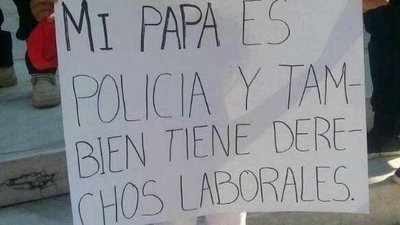 MI PAPA ES
POLICIA Y TAM-
BIEN TIENE DERE-
CHOS LABORALES.